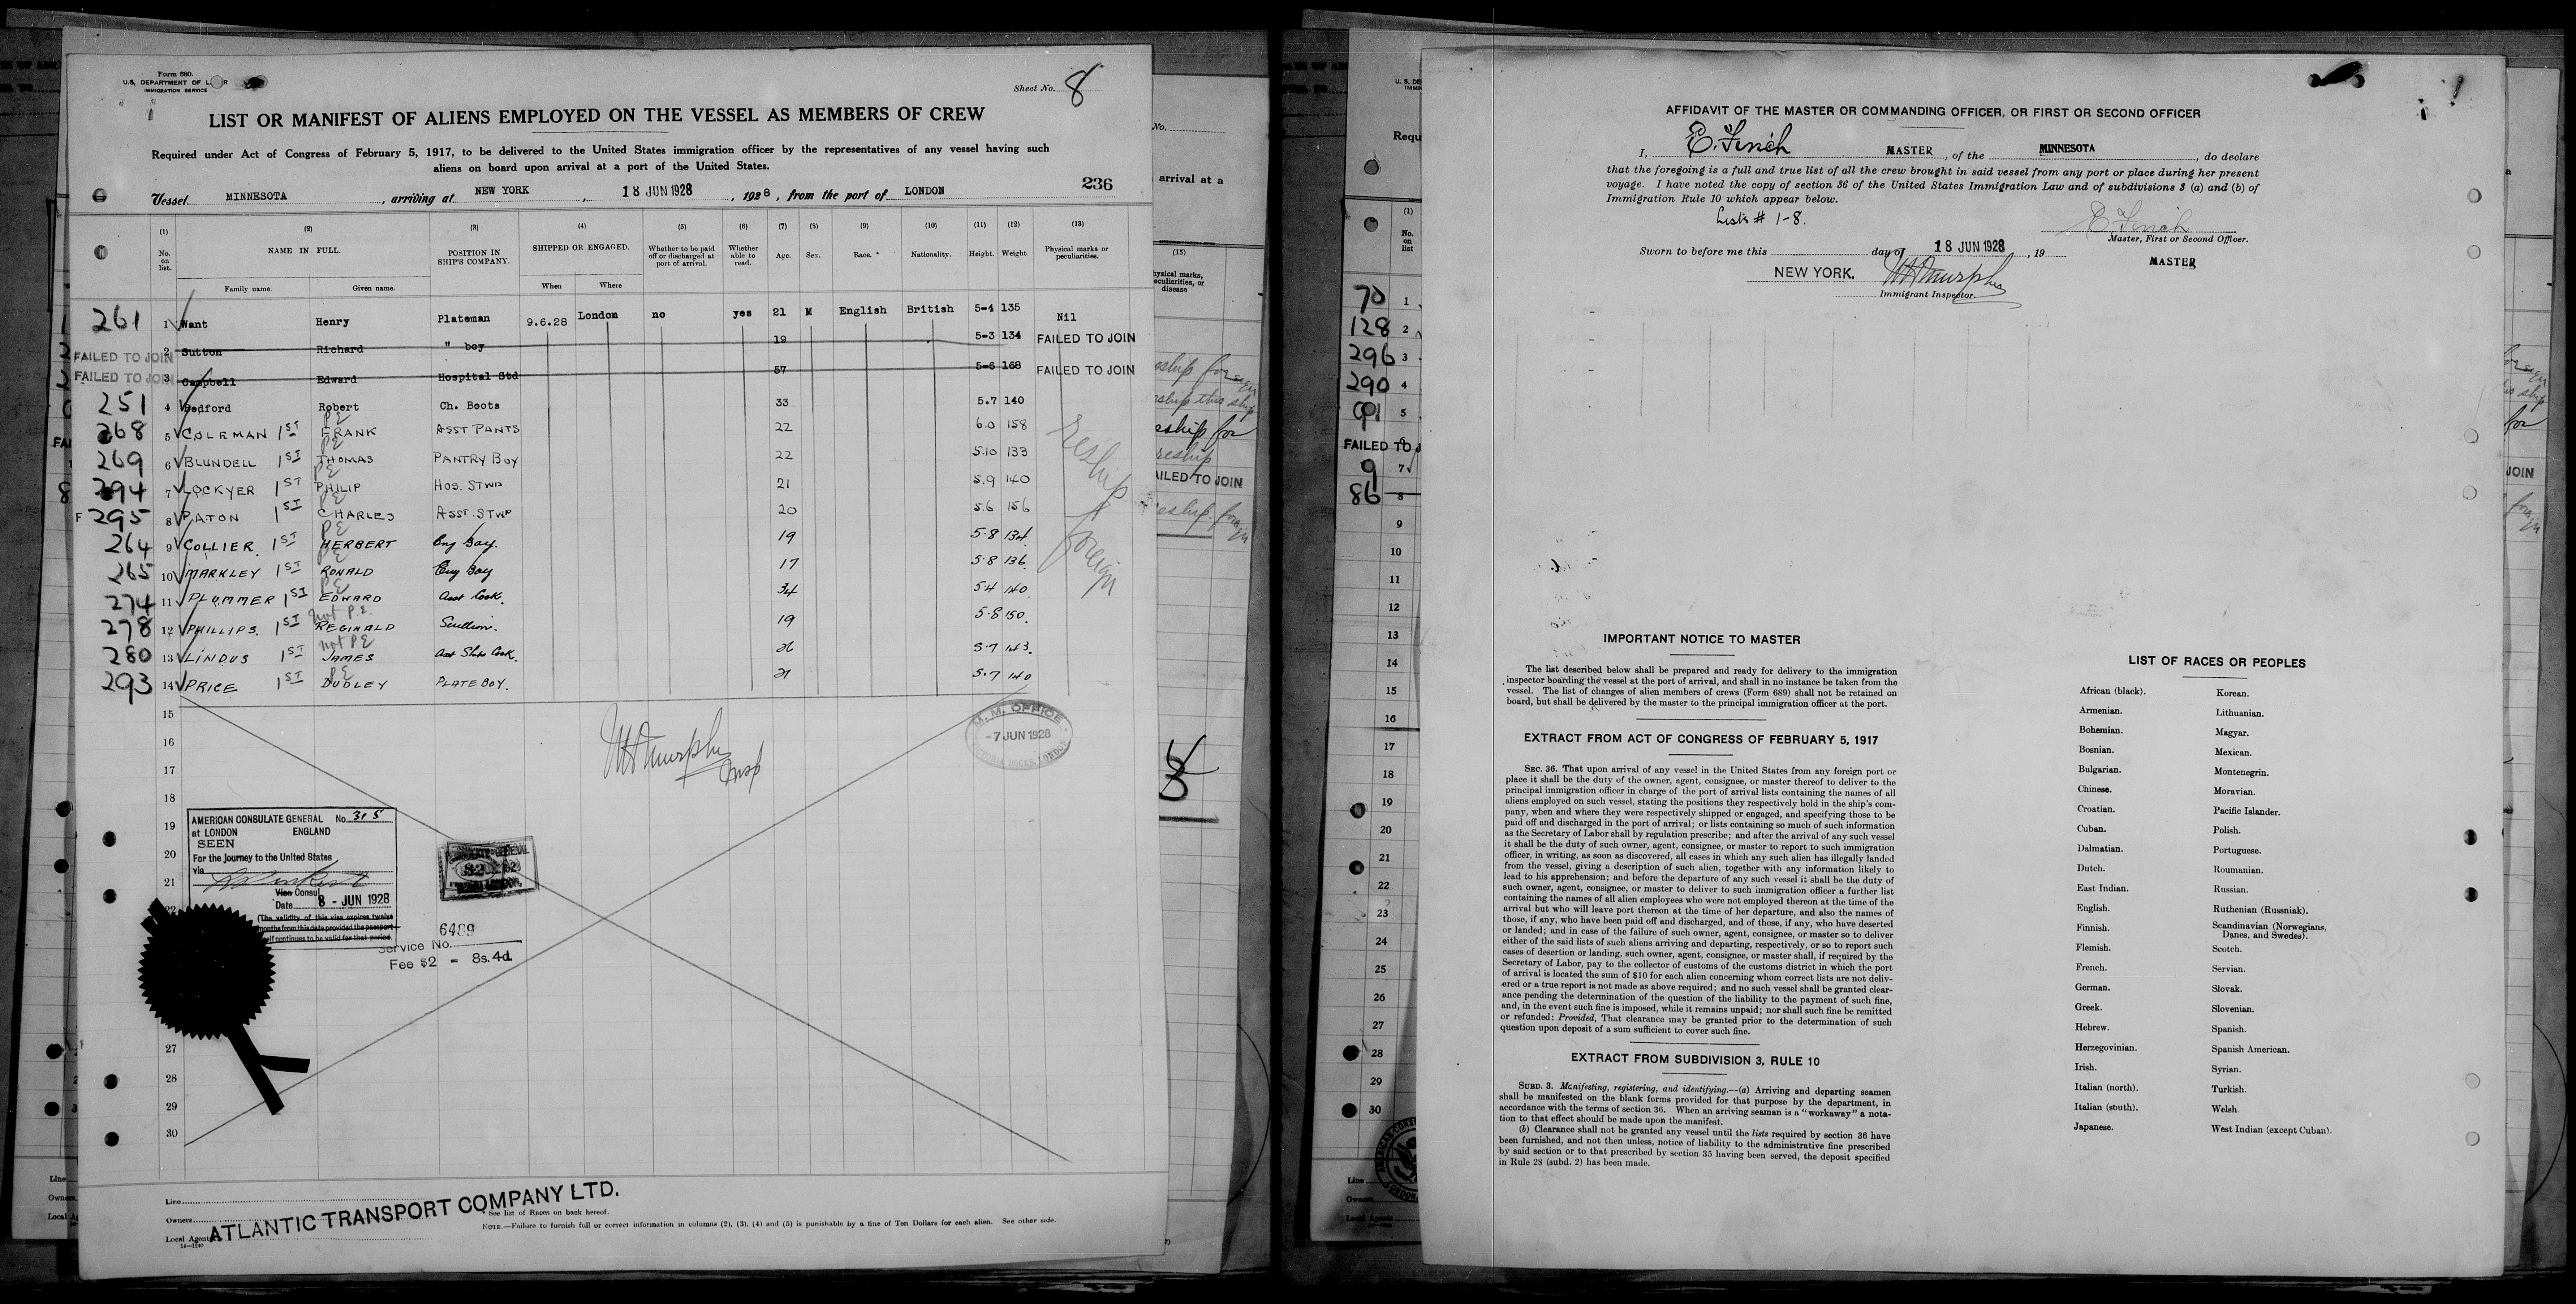 Form 680.
U.S. DEPARTMENT OF LABOR
IMMIGRATION SERVICE
Sheet No. 8
LIST OR MANIFEST OF ALIENS EMPLOYED ON THE VESSEL AS MEMBERS OF CREW
Required under Act of Congress of February 5, 1917, to be delivered to the United States immigration officer by the representatives of any vessel having such
aliens on board upon arrival at a port of the United States.
236
Vessel MINNESOTA, arriving at NEW YORK, 18 JUN 1928, 1928, from the port of LONDON
(1) (2) (3) (4) (5) (6) (7) (8) (9) (10) (11) (12) (13)
No. on list. NAME IN FULL. POSITION IN SHIP'S COMPANY. SHIPPED OR ENGAGED. Whether to be paid off or discharged at port of arrival. Whether able to read. Age. Sex. Race.* Nationality. Height. Weight. Physical marks or peculiarities.
Family name. Given name. When Where
261 1 Want Henry Plateman 9.6.28 London no yes 21 M English British 5-4 135 Nil
FAILED TO JOIN 2 Sutton Richard " boy 19 5-3 134 FAILED TO JOIN
FAILED TO JOIN 3 Campbell Edward Hospital Std 57 5-6 168 FAILED TO JOIN
251 4 Bedford Robert Ch. Boots 33 5.7 140
268 5 COLEMAN 1ST PE FRANK ASST PANTS 22 6.0 158
269 6 BLUNDELL 1ST PE THOMAS PANTRY BOY 22 5.10 133
294 7 LOCKYER 1ST PE PHILIP HOS. STWD 21 5.9 140
295 8 PATON 1ST PE CHARLES ASST. STWD 20 5.6 156
264 9 COLLIER 1ST PE HERBERT Eng Boy. 19 5.8 134
265 10 MARKLEY 1ST PE RONALD Eng Boy 17 5.8 136
274 11 PLUMMER 1ST PE EDWARD Asst Cook. 34 5.4 140
278 12 PHILLIPS. 1ST Not P.E. REGINALD Scullion. 19 5.8 150.
280 13 LINDUS 1ST Not PE JAMES Asst Ships Cook. 26 5.7 143.
293 14 PRICE 1ST PE DUDLEY PLATE BOY. 21 5.7 140
Reship foreign
15
16
17
18
19
20
21
22
27
28
29
30
M. M. OFFICE
-7 JUN 1928
VICTORIA DOCKS, LONDON
Murphy
Insp
AMERICAN CONSULATE GENERAL No. 315
at LONDON ENGLAND
SEEN
For the journey to the United States
via
Vice Consul
Date 8 - JUN 1928
(The validity of this visa expires twelve
months from this date provided the passport
itself continues to be valid for that period.
6489
Service No.
Fee $2 = 8s. 4d.
Line
Owners
Local Agents
ATLANTIC TRANSPORT COMPANY LTD.
* See list of Races on back hereof.
NOTE.—Failure to furnish full or correct information in columns (2), (3), (4) and (5) is punishable by a fine of Ten Dollars for each alien. See other side.
14—1240
No.
arrival at a
(15)
Physical marks, peculiarities, or disease
reship foreign
reship this ship
reship for
reship
FAILED TO JOIN
reship foreign
8
U. S. DE
Requ
(1)
No. on list
70 1
128 2
296 3
290 4
5
FAILED TO J
9 7
86 8
9
10
11
12
13
14
15
16
17
18
19
20
21
22
23
24
25
26
27
28
29
30
Line
Owners
Local Agents
AFFIDAVIT OF THE MASTER OR COMMANDING OFFICER, OR FIRST OR SECOND OFFICER
I, E. Finch MASTER, of the MINNESOTA, do declare
that the foregoing is a full and true list of all the crew brought in said vessel from any port or place during her present
voyage. I have noted the copy of section 36 of the United States Immigration Law and of subdivisions 3 (a) and (b) of
Immigration Rule 10 which appear below.
Lists # 1-8.
E Finch
Master, First or Second Officer.
Sworn to before me this day of 18 JUN 1928, 19
MASTER
NEW YORK. Murphy
Immigrant Inspector.
IMPORTANT NOTICE TO MASTER
The list described below shall be prepared and ready for delivery to the immigration
inspector boarding the vessel at the port of arrival, and shall in no instance be taken from the
vessel. The list of changes of alien members of crews (Form 689) shall not be retained on
board, but shall be delivered by the master to the principal immigration officer at the port.
EXTRACT FROM ACT OF CONGRESS OF FEBRUARY 5, 1917
SEC. 36. That upon arrival of any vessel in the United States from any foreign port or
place it shall be the duty of the owner, agent, consignee, or master thereof to deliver to the
principal immigration officer in charge of the port of arrival lists containing the names of all
aliens employed on such vessel, stating the positions they respectively hold in the ship's com-
pany, when and where they were respectively shipped or engaged, and specifying those to be
paid off and discharged in the port of arrival; or lists containing so much of such information
as the Secretary of Labor shall by regulation prescribe; and after the arrival of any such vessel
it shall be the duty of such owner, agent, consignee, or master to report to such immigration
officer, in writing, as soon as discovered, all cases in which any such alien has illegally landed
from the vessel, giving a description of such alien, together with any information likely to
lead to his apprehension; and before the departure of any such vessel it shall be the duty of
such owner, agent, consignee, or master to deliver to such immigration officer a further list
containing the names of all alien employees who were not employed thereon at the time of the
arrival but who will leave port thereon at the time of her departure, and also the names of
those, if any, who have been paid off and discharged, and of those, if any, who have deserted
or landed; and in case of the failure of such owner, agent, consignee, or master so to deliver
either of the said lists of such aliens arriving and departing, respectively, or so to report such
cases of desertion or landing, such owner, agent, consignee, or master shall, if required by the
Secretary of Labor, pay to the collector of customs of the customs district in which the port
of arrival is located the sum of $10 for each alien concerning whom correct lists are not deliv-
ered or a true report is not made as above required; and no such vessel shall be granted clear-
ance pending the determination of the question of the liability to the payment of such fine,
and, in the event such fine is imposed, while it remains unpaid; nor shall such fine be remitted
or refunded: Provided, That clearance may be granted prior to the determination of such
question upon deposit of a sum sufficient to cover such fine.
EXTRACT FROM SUBDIVISION 3, RULE 10
SUBD. 3. Manifesting, registering, and identifying.—(a) Arriving and departing seamen
shall be manifested on the blank forms provided for that purpose by the department, in
accordance with the terms of section 36. When an arriving seaman is a "workaway" a nota-
tion to that effect should be made upon the manifest.
(b) Clearance shall not be granted any vessel until the lists required by section 36 have
been furnished, and not then unless, notice of liability to the administrative fine prescribed
by said section or to that prescribed by section 35 having been served, the deposit specified
in Rule 28 (subd. 2) has been made.
LIST OF RACES OR PEOPLES
African (black). Korean.
Armenian. Lithuanian.
Bohemian. Magyar.
Bosnian. Mexican.
Bulgarian. Montenegrin.
Chinese. Moravian.
Croatian. Pacific Islander.
Cuban. Polish.
Dalmatian. Portuguese.
Dutch. Roumanian.
East Indian. Russian.
English. Ruthenian (Russniak).
Finnish. Scandinavian (Norwegians, Danes, and Swedes).
Flemish. Scotch.
French. Servian.
German. Slovak.
Greek. Slovenian.
Hebrew. Spanish.
Herzegovinian. Spanish American.
Irish. Syrian.
Italian (north). Turkish.
Italian (south). Welsh.
Japanese. West Indian (except Cuban).
JOIN